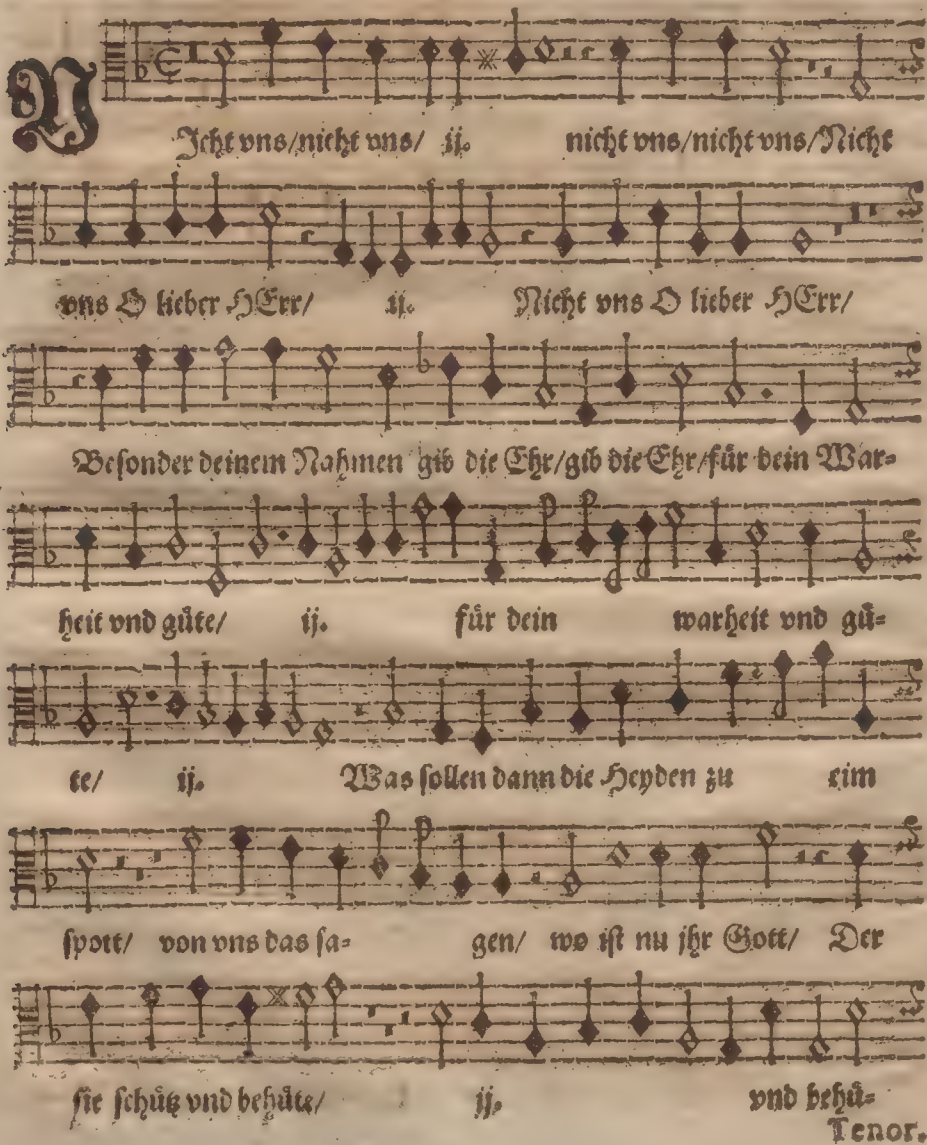 NJcht vns/nicht vns/ ij. nicht vns/nicht vns/Nicht
vns O lieber HErr/ ij. Nicht vns O lieber HErr/
Besonder deinem Nahmen gib die Ehr/gib die Ehr/für dein War=
heit vnd güte/ ij. für dein warheit vnd gü=
te/ ij. Was sollen dann die Heyden zu eim
spott/ von vns das sa= gen/ wo ist nu jhr Gott/ Der
sie schütz vnd behüte/ ij. vnd behü=
Tenor.